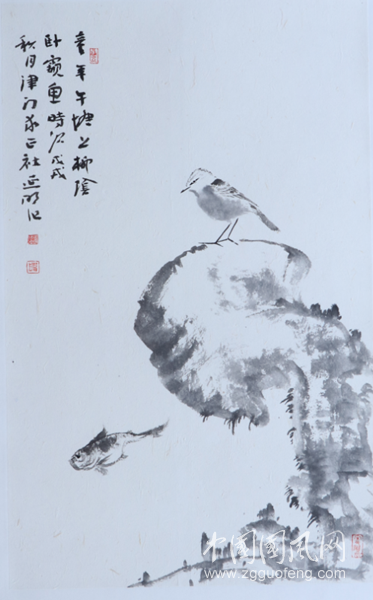 童年午塘上柳陰
卧窺魚時 戊戌
秋月津门 正社 延明记
中国国风网
www.zgguofeng.com